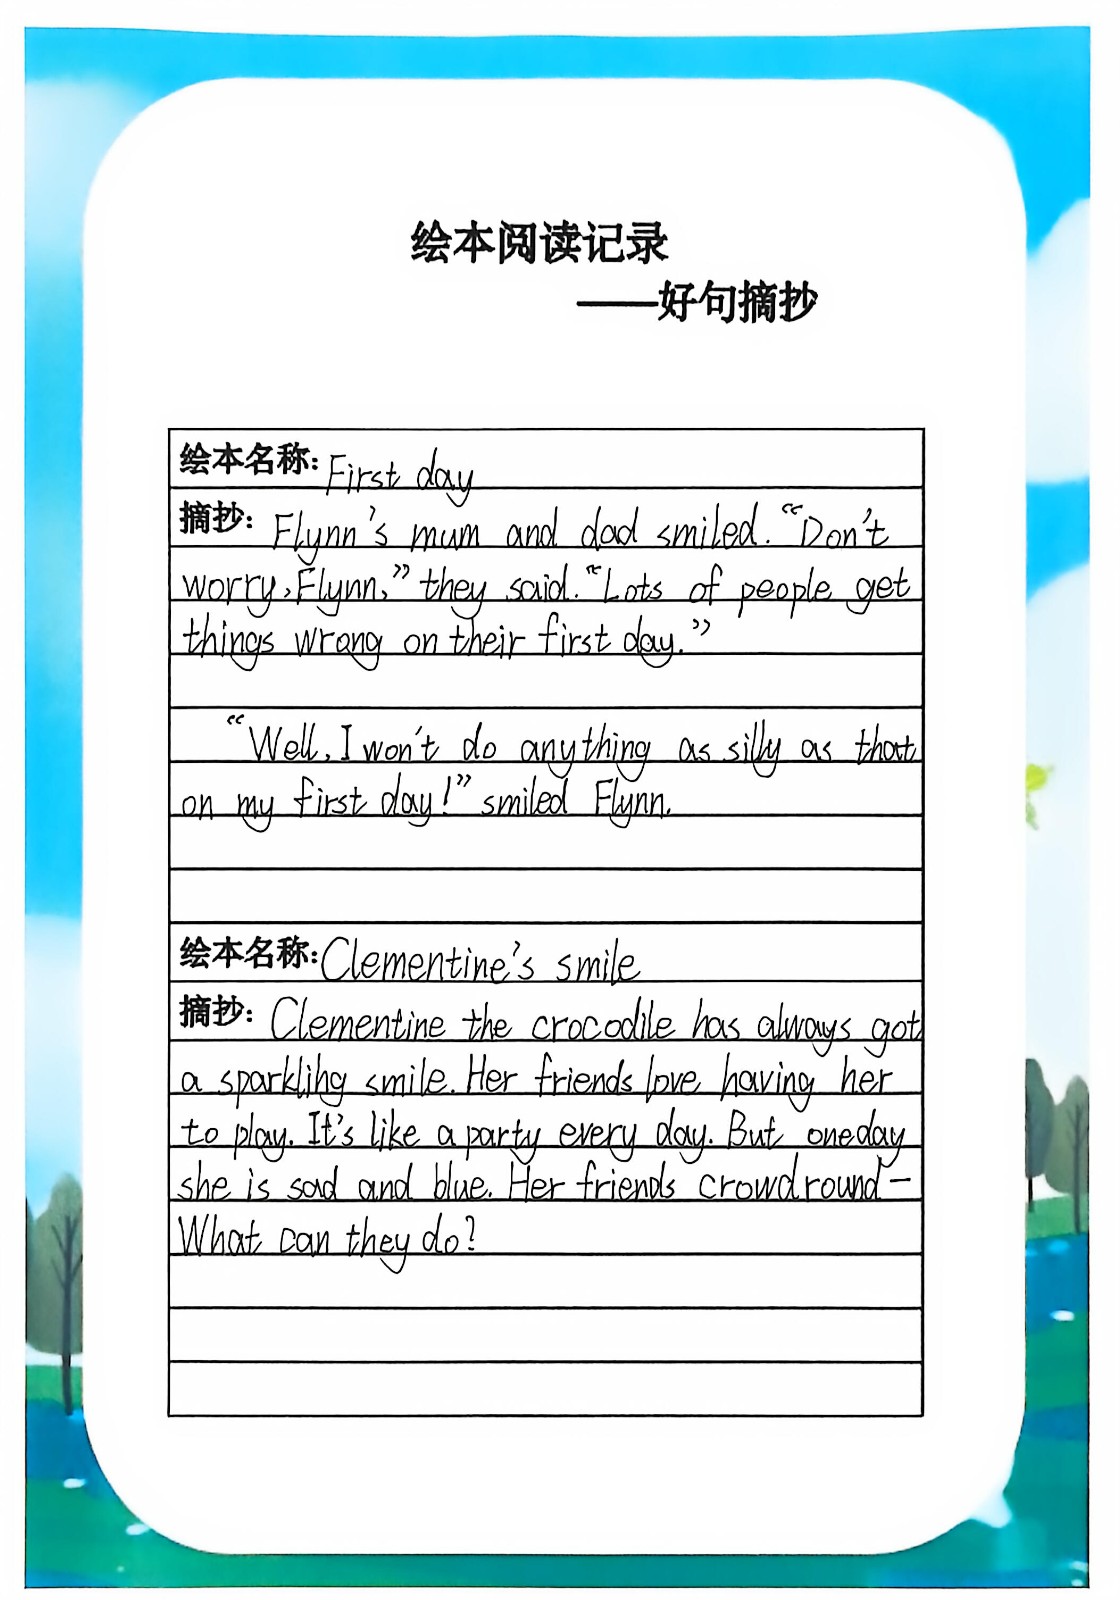 绘本阅读记录
——好句摘抄
绘本名称: First day
摘抄: Flynn's mum and dad smiled. “Don't
worry, Flynn,” they said. “Lots of people get
things wrong on their first day.”
“Well, I won't do anything as silly as that
on my first day!” smiled Flynn.
绘本名称: Clementine's smile
摘抄: Clementine the crocodile has always got
a sparkling smile. Her friends love having her
to play. It's like a party every day. But oneday
she is sad and blue. Her friends crowd round–
What can they do?